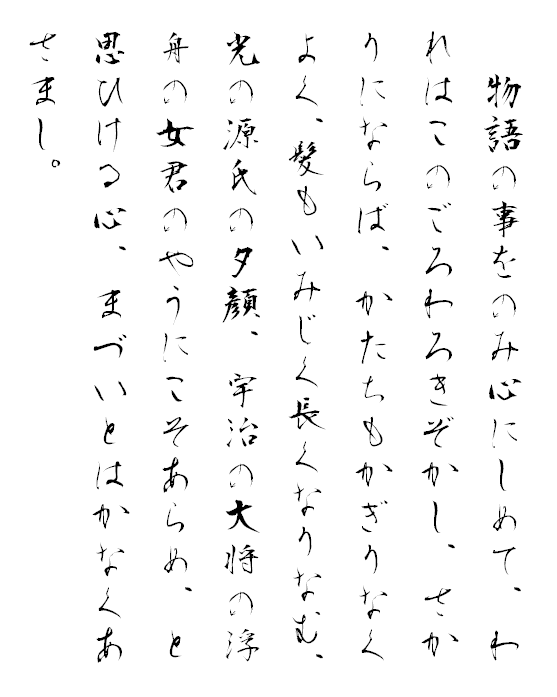 物語の事をのみ心にしめて、わ
れはこのごろわろきぞかし、さか
りにならば、かたちもかぎりなく
よく、髪もいみじく長くなりなむ、
光の源氏の夕顔、宇治の大将の浮
舟の女君のやうにこそあらめ、と
思ひける心、まづいとはかなくあ
さまし。